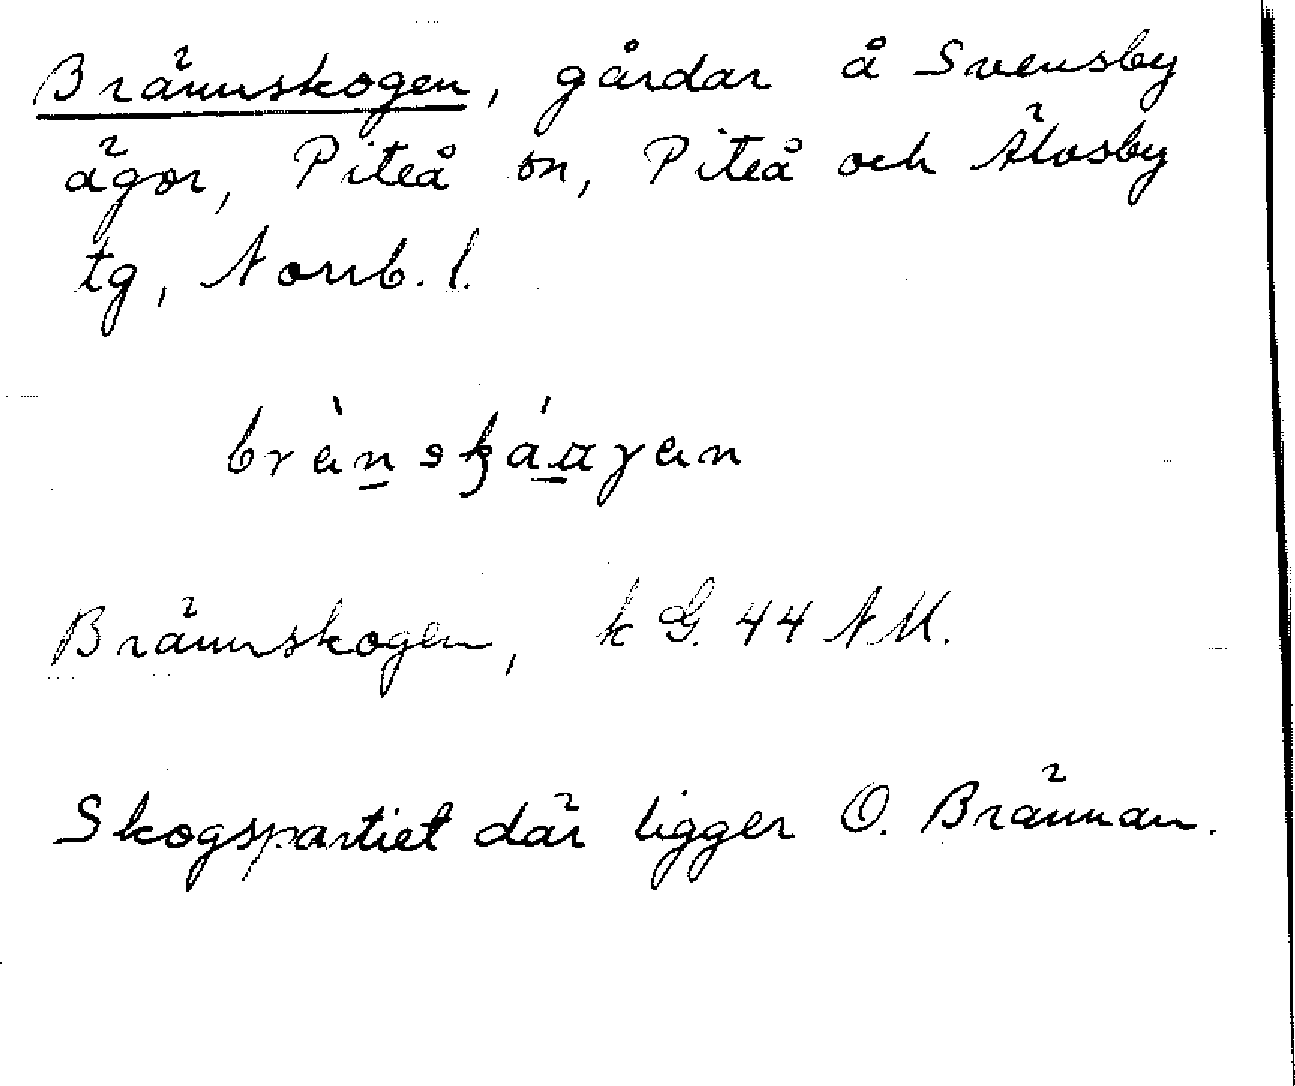 Brännskogen, gårdar å Svensby
ägor, Piteå sn, Piteå och Älvsby
tg, Norrb. l.
Brännskogen, k G. 44 N M.
Skogspartiet där ligger O. Brännan.